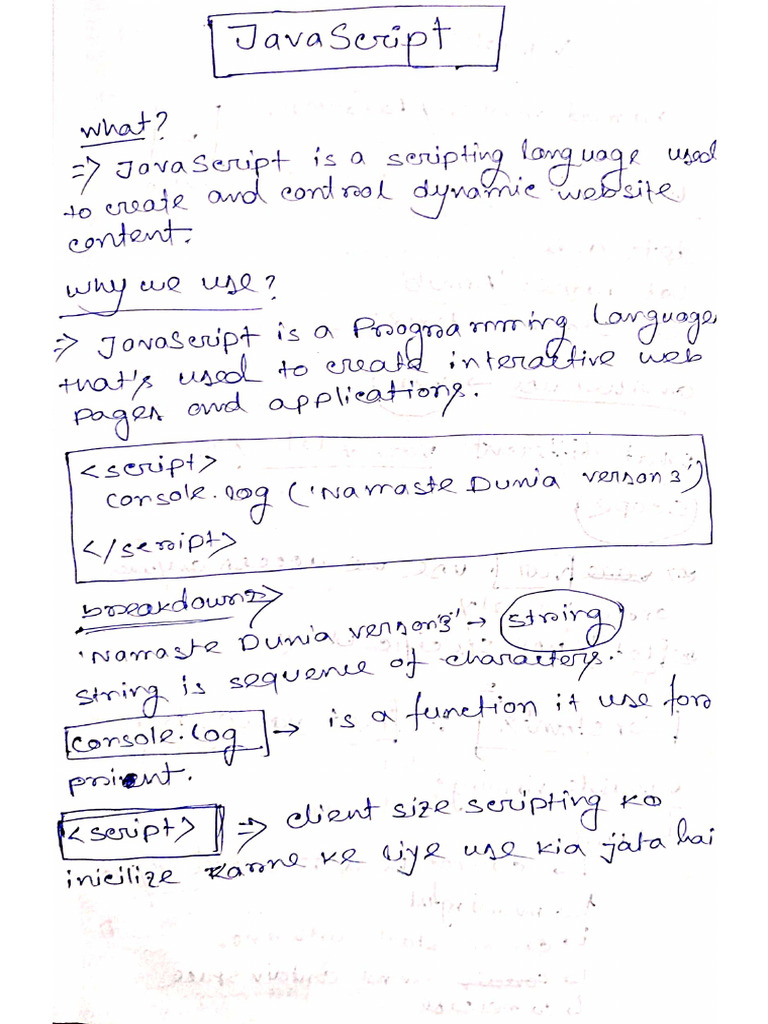 JavaScript
what?
=> JavaScript is a scripting language used
to create and control dynamic website
content.
why we use?
=> JavaScript is a Programming language,
that's used to create interactive web
pages and applications.
<script>
console.log ('Namaste Dunia verson3')
</script>
breakdown=>
'Namaste Dunia verson3' → string
string is sequence of characters.
console.log → is a function it use for
print.
<script> => client size scripting ko
inicilize karne ke liye use kia jata hai